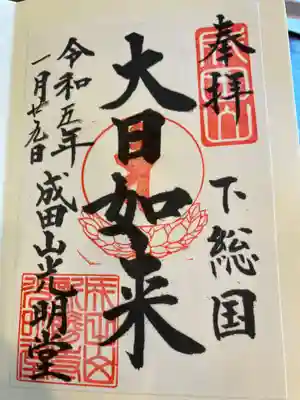 奉拝
下総国
大日如来
成田山光明堂
令和五年
一月廿九日